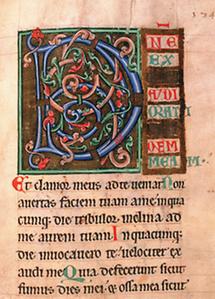 D
NE
EX
AUDI
ORATI
ONEM
MEAM.
Et clamor meus ad te veniat. Non
avertas faciem tuam a me in qua
cumq; die tribulor inclina ad
me aurem tuam. In quacumq;
die invocavero te velociter ex
audi me. Quia defecerunt sicut
fumus dies mei & ossa mea sicut